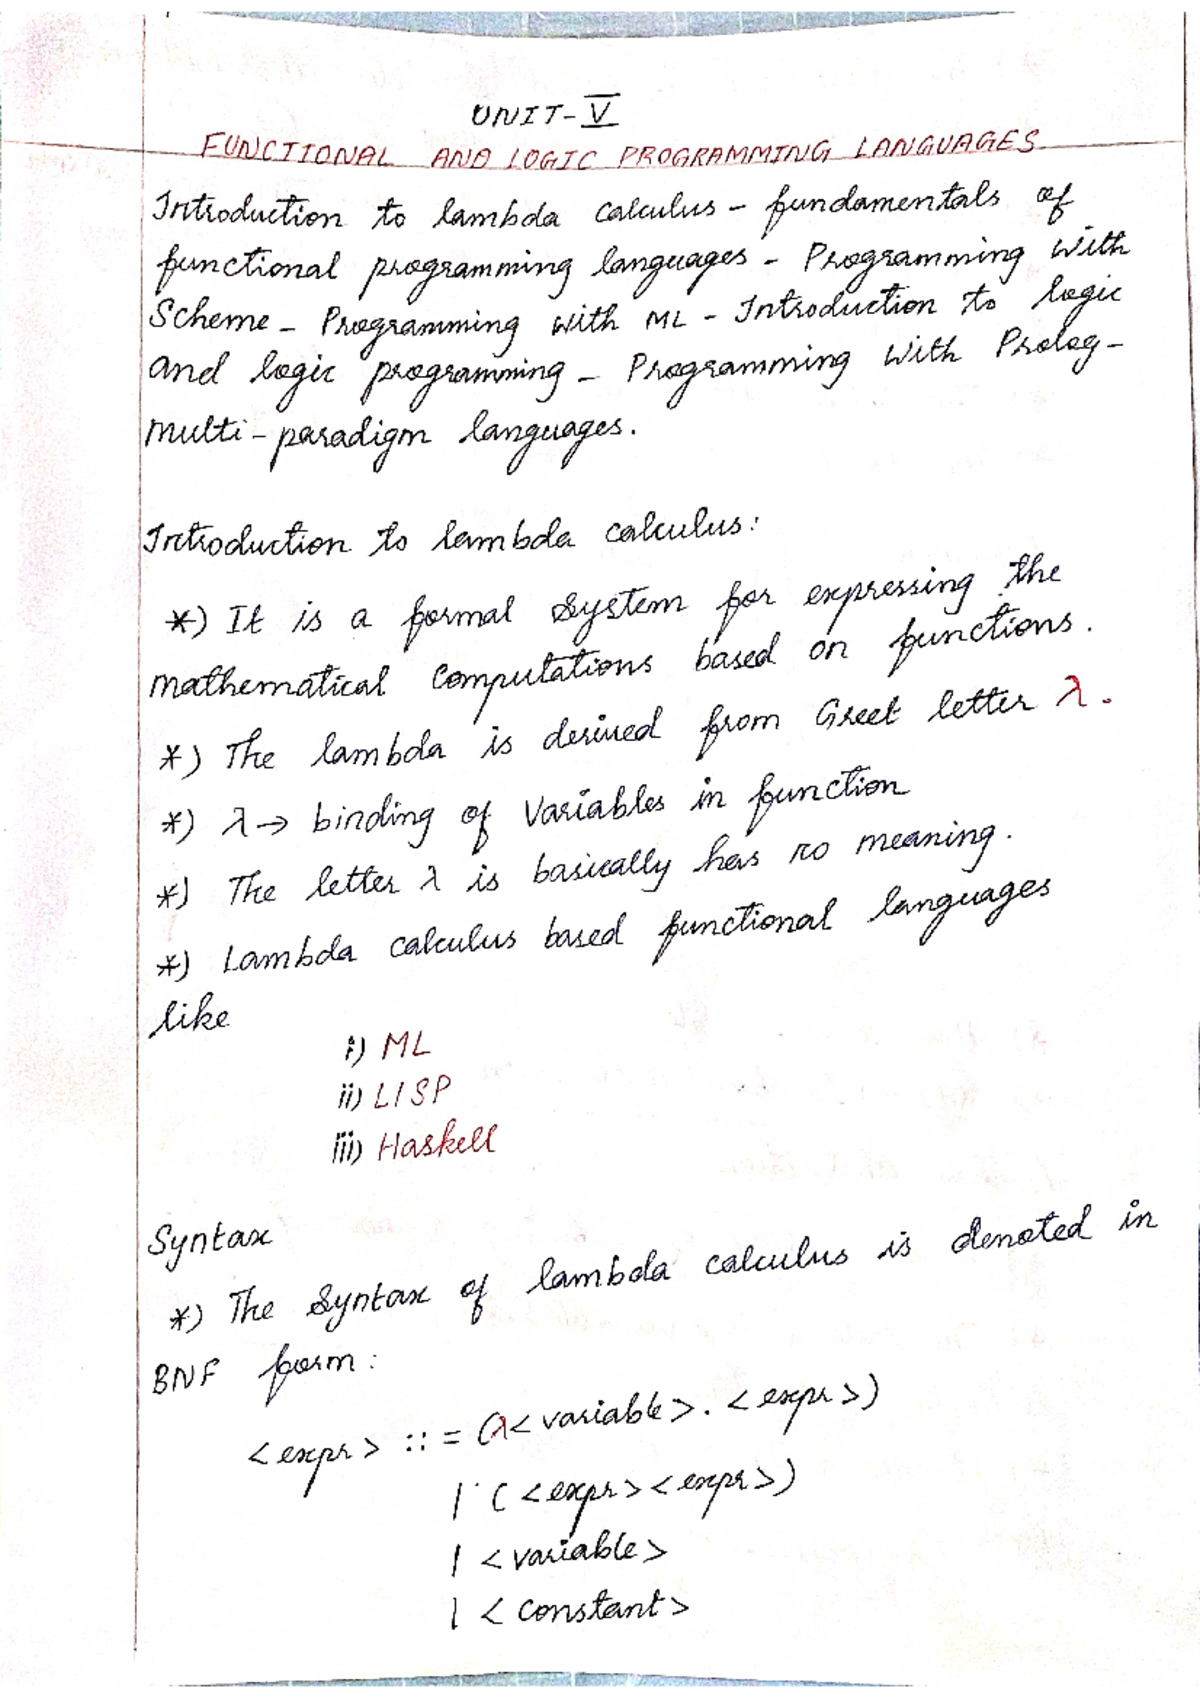 UNIT-V
FUNCTIONAL AND LOGIC PROGRAMMING LANGUAGES
Introduction to lambda calculus - fundamentals of
functional programming languages - Programming with
Scheme - Programming with ML - Introduction to logic
and logic programming - Programming with Prolog -
multi-paradigm languages.
Introduction to lambda calculus:
*) It is a formal system for expressing the
mathematical computations based on functions.
*) The lambda is derived from Greet letter λ.
*) λ→ binding of variables in function
*) The letter λ is basically has no meaning.
*) Lambda calculus based functional languages
like
i) ML
ii) LISP
iii) Haskell
Syntax
*) The syntax of lambda calculus is denoted in
BNF form:
<expr> ::= (λ<variable>.<expr>)
| (<expr><expr>)
| <variable>
| <constant>